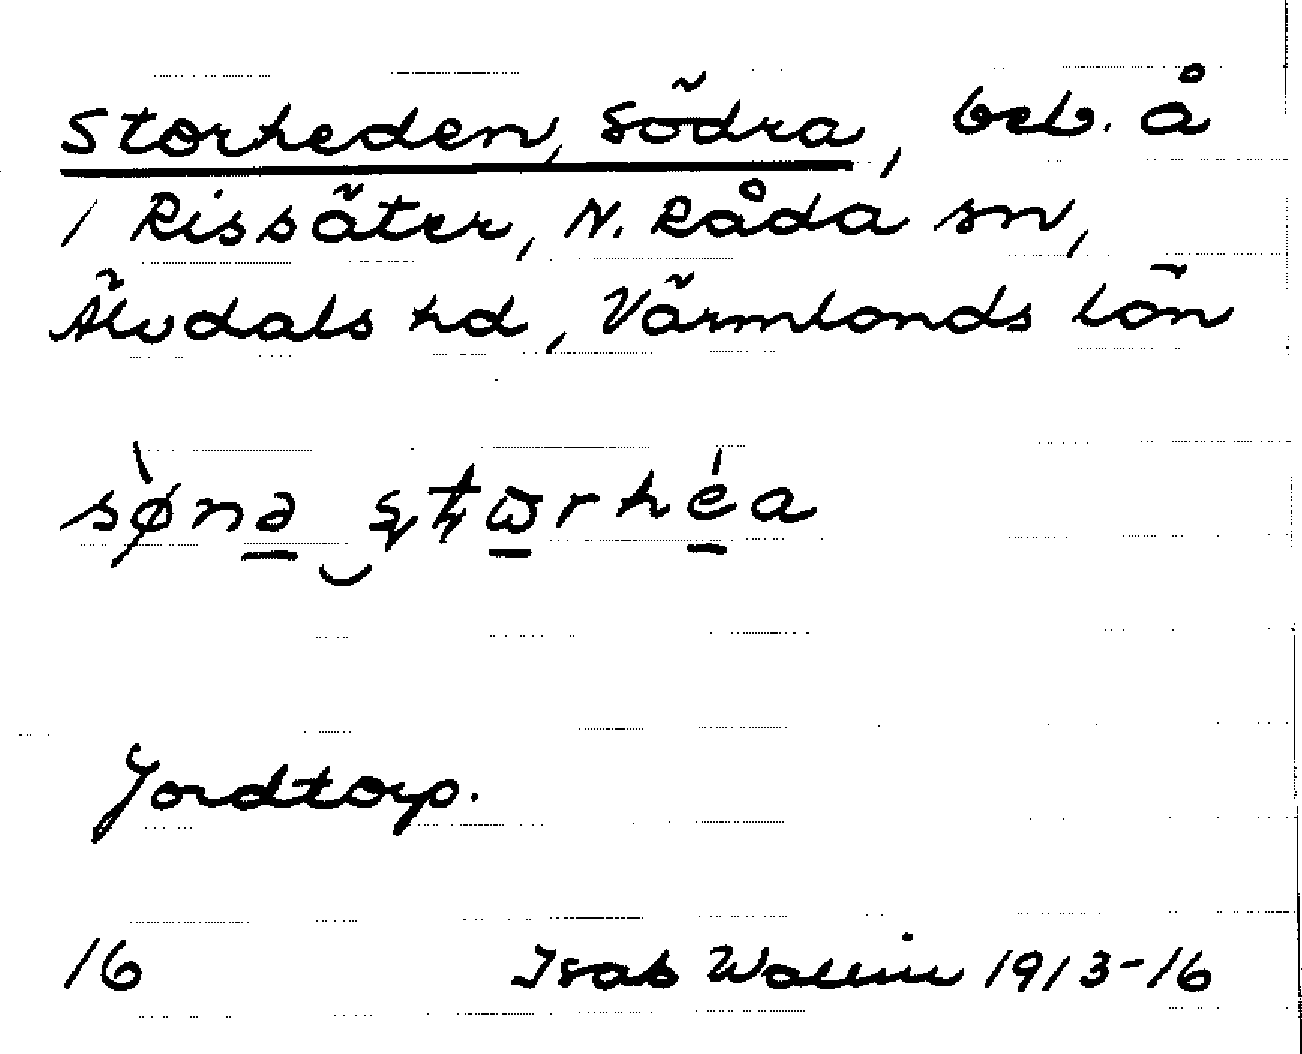 Storheden, Södra, beb. å
1 Rissäter, N. Råda sn,
Älvdals hd, Värmlands län
Jordtorp.
16 Isak Wallin 1913-16